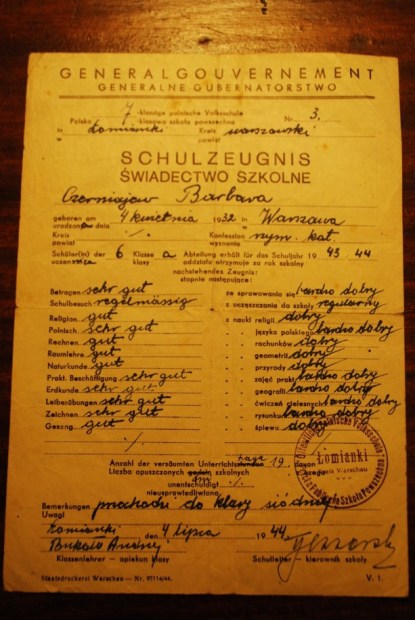 GENERALGOUVERNEMENT
GENERALNE GUBERNATORSTWO
7 -klassige polnische Volksschule Nr. 3.
Polska klasowa szkoła powszechna
in Łomianki Kreis warszawski
w powiat
SCHULZEUGNIS
ŚWIADECTWO SZKOLNE
Czerniajew Barbara
geboren am 4 kwietnia 1932 in Warszawa
urodzona dnia w
Kreis ./. Konfession rzym. kat.
powiat wyznanie
Schüler(in) der 6 Klasse a Abteilung erhält für das Schuljahr 19 43/44
uczennica klasy oddziału otrzymuje za rok szkolny
nachstehendes Zeugnis:
stopnie następujące:
Betragen sehr gut ze sprawowania się bardzo dobry
Schulbesuch regelmässig z uczęszczania do szkoły regularny
Religion gut z nauki religii dobry
Polnisch sehr gut " języka polskiego bardzo dobry
Rechnen gut " rachunków dobry
Raumlehre gut " geometrii dobry
Naturkunde gut " przyrody dobry
Prakt. Beschäftigung sehr gut " zajęć prakt. bardzo dobry
Erdkunde sehr gut " geografii bardzo dobry
Leibesübungen sehr gut " ćwiczeń cielesnych bardzo dobry
Zeichnen sehr gut " rysunku bardzo dobry
Gesang gut " śpiewu dobry
./.
Anzahl der versäumten Unterrichtsstunden Tage 19. davon
Liczba opuszczonych godzin dni z tego
unentschuldigt ./.
nieusprawiedliwiono
Łomianki
Kreis Warschau
Bemerkungen przechodzi do klasy siódmej
Uwagi
Łomianki den 4 lipca 1944
Klassenlehrer - opiekun klasy Schulleiter - kierownik szkoły
Staatsdruckerei Warschau - Nr. V. 1.